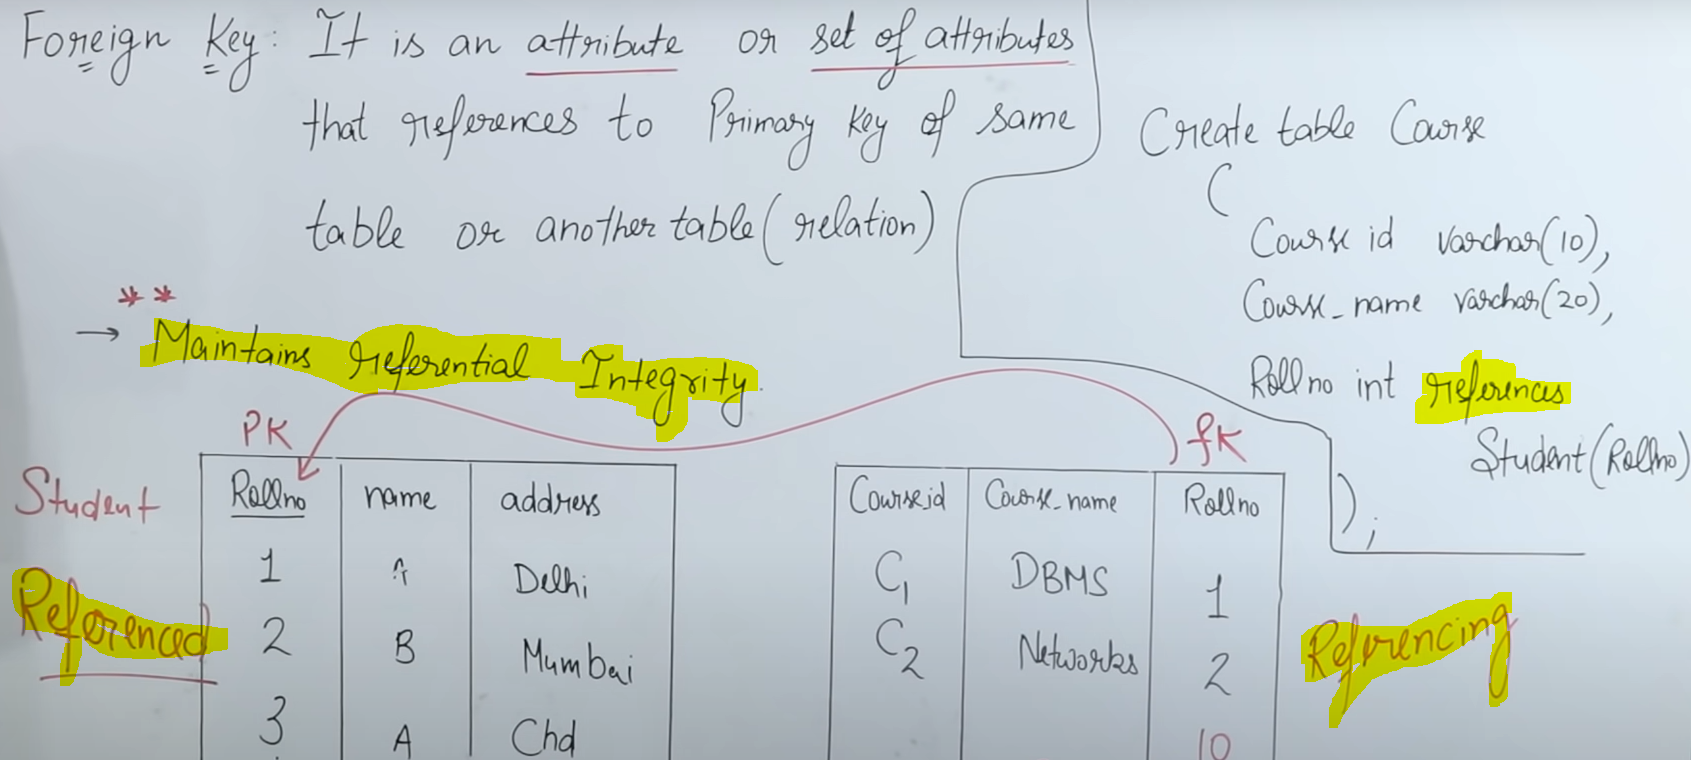 Foreign Key: It is an attribute or set of attributes
that references to Primary Key of same
table or another table (relation)
**
→ Maintains referential Integrity.
Create table Course
(
Course id varchar(10),
Course_name varchar(20),
Rollno int references
Student(Rollno)
);
PK
Student
Referenced
Rollno name address
1 A Delhi
2 B Mumbai
3 A Chd
fK
Course id Course_name Rollno
C1 DBMS 1
C2 Networks 2
10
Referencing